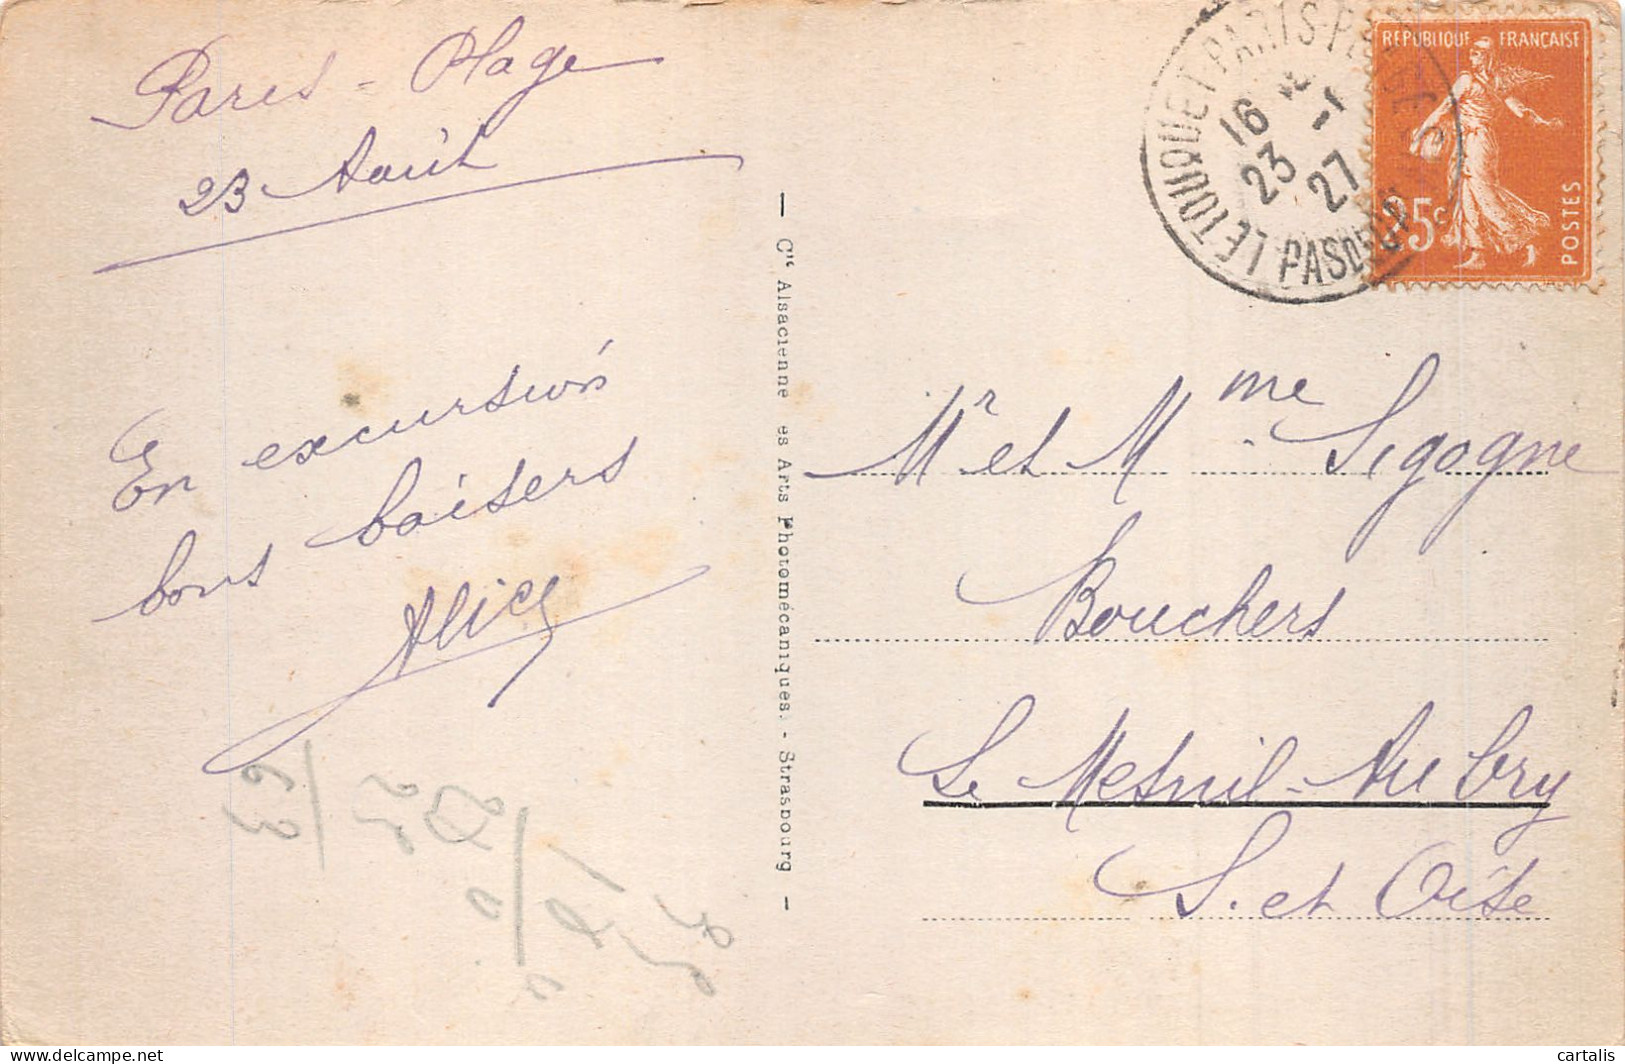 Paris-Plage
23 Août
En excursion
bons baisers
Alice
Cie Alsacienne es Arts Photomécaniques. - Strasbourg
LE TOUQUET PARIS-PLAGE
PAS DE CALAIS
16
23 - 27
REPUBLIQUE FRANÇAISE
25c
POSTES
Mr et Mme Sigogne
Bouchers
Le Mesnil-Aubry
S. et Oise
63
delcampe.net
cartalis